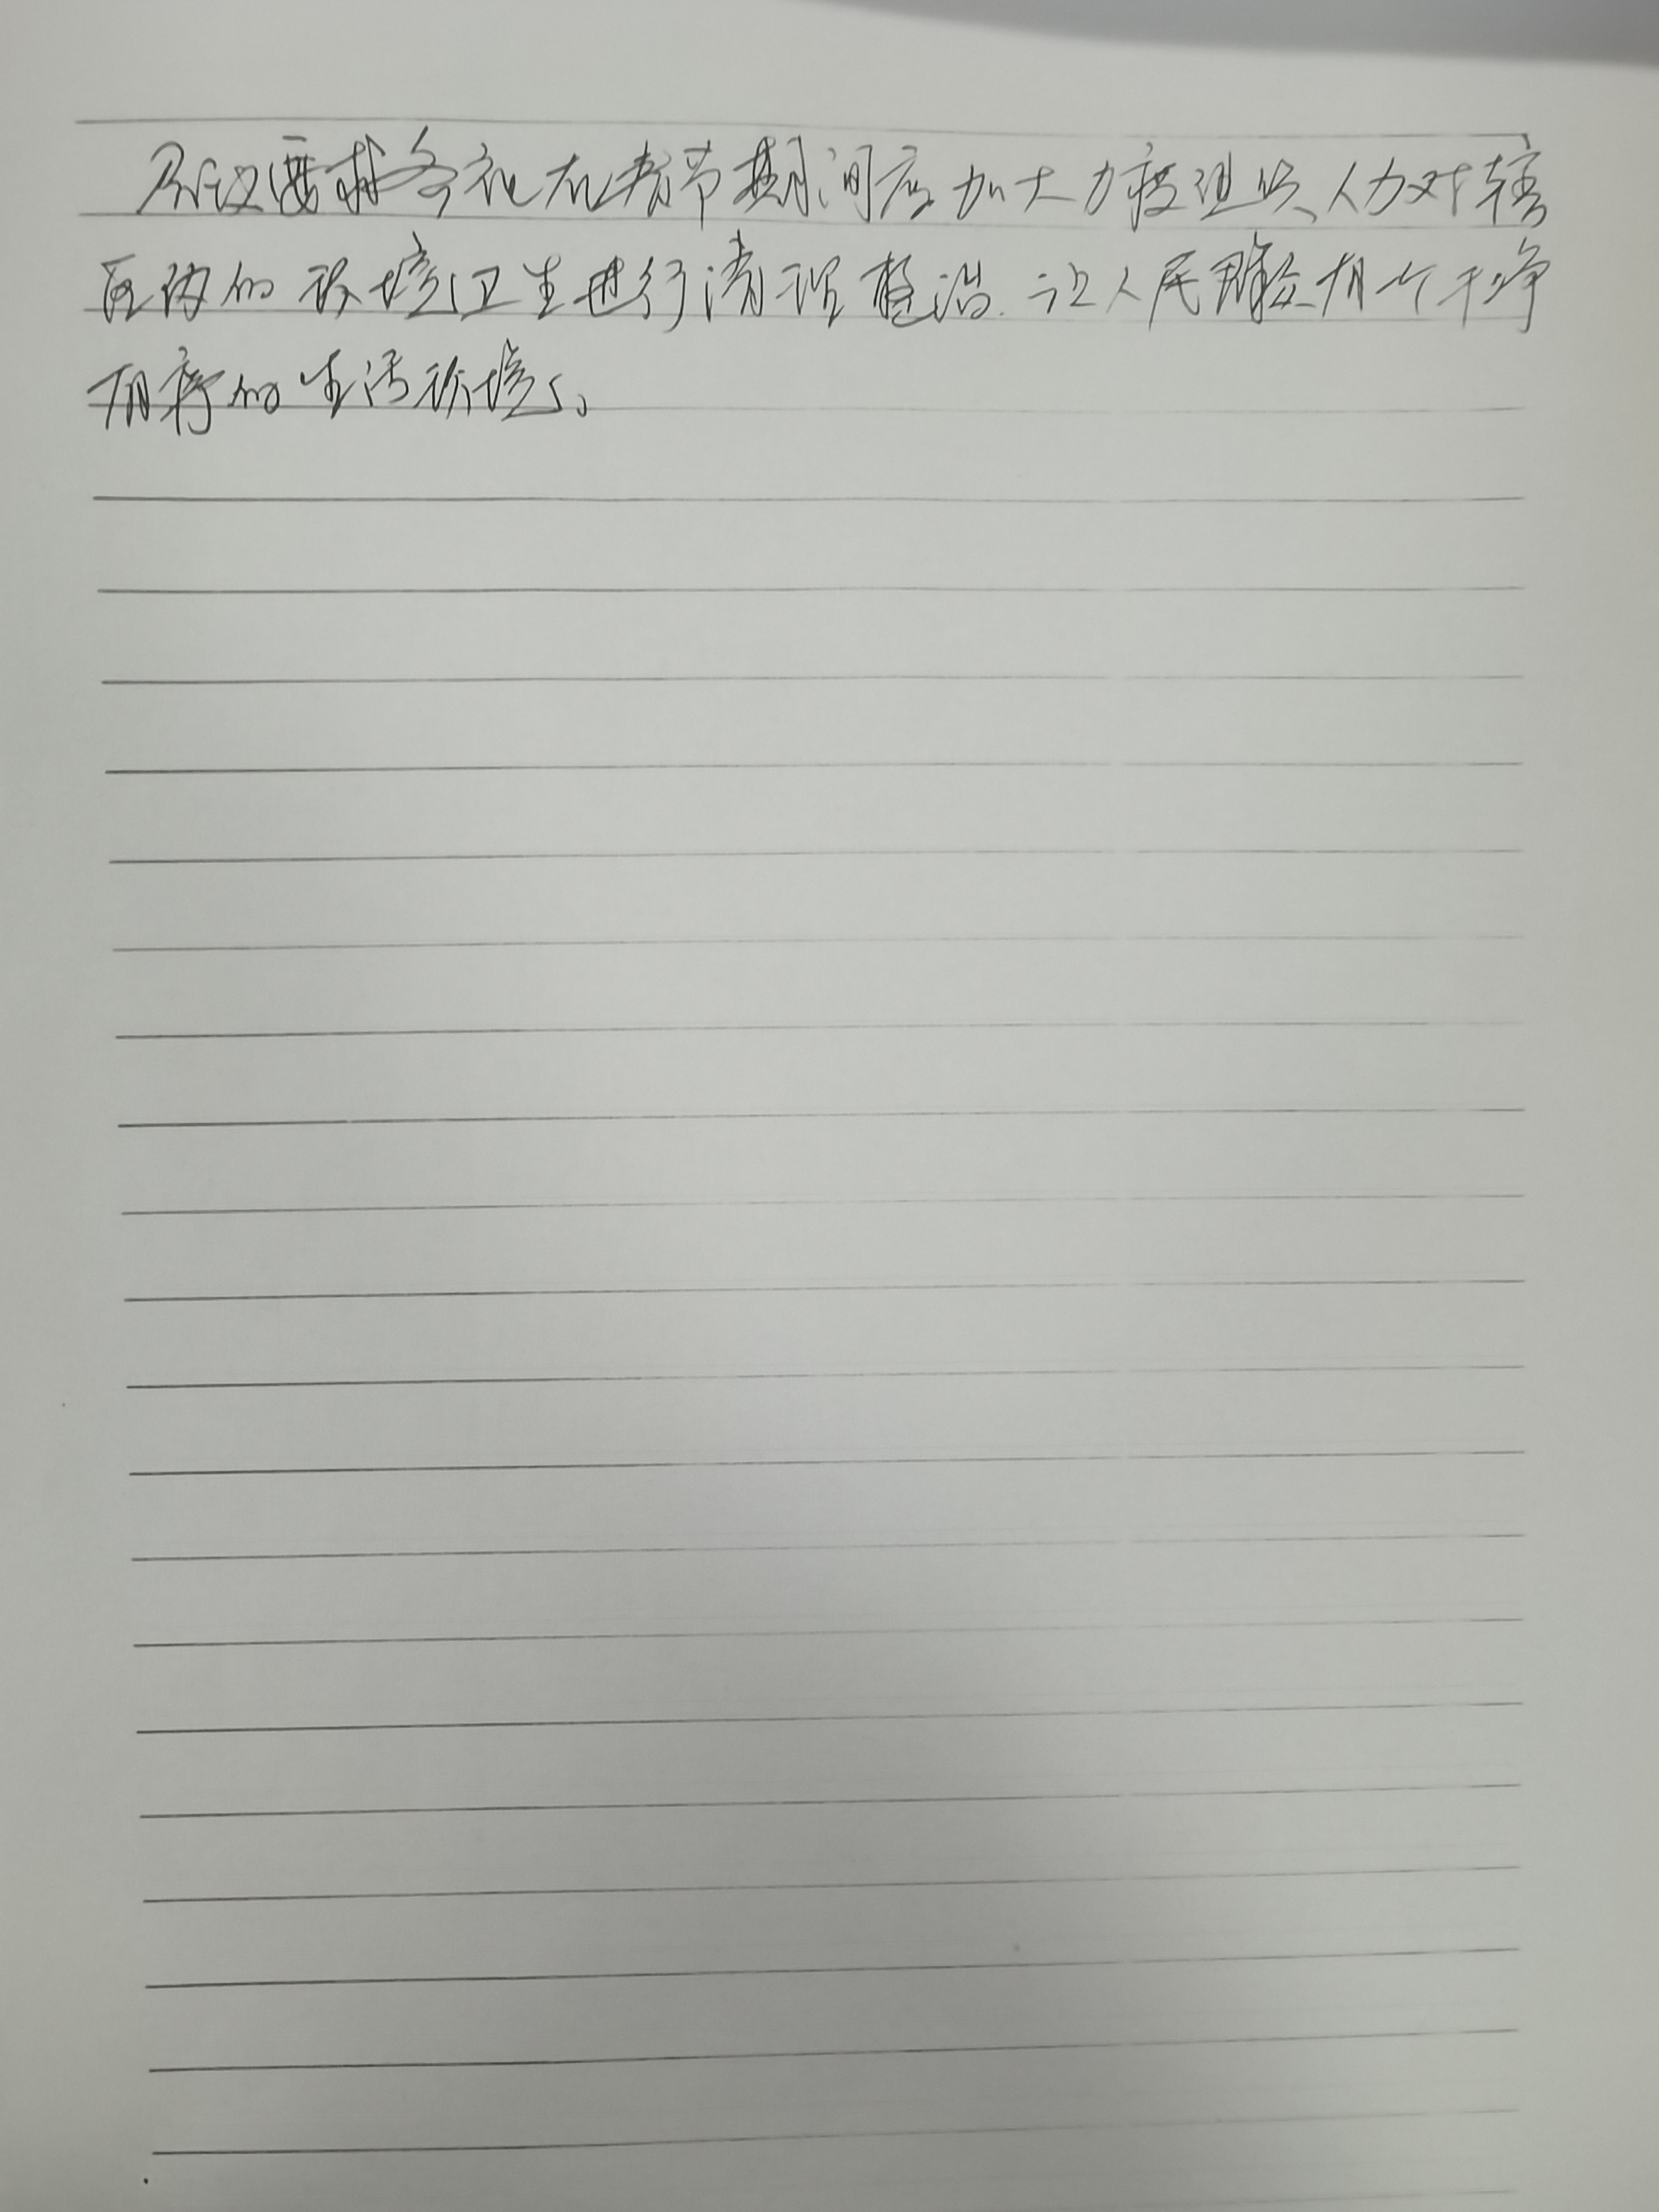 会议要求各社在春节期间应加大力度组织人力对辖
区内的环境卫生进行清理整治.让人民群众有个干净
有序的生活环境。